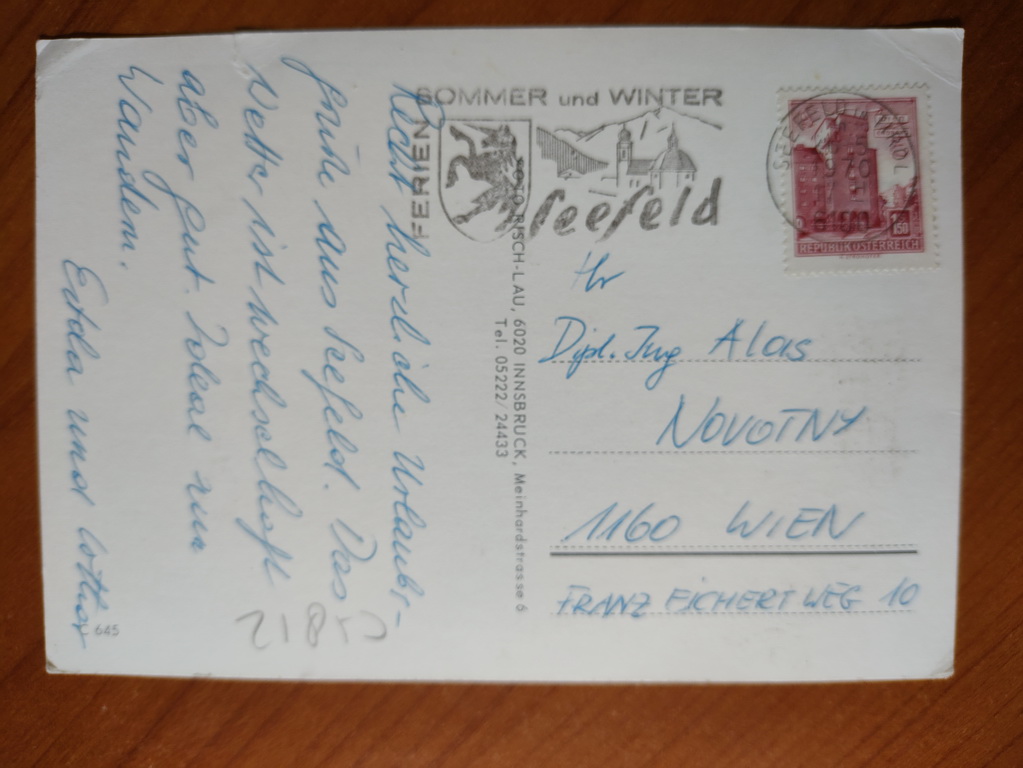 Recht herzliche Urlaubs-
grüße aus Seefeld. Das
Wetter ist wechselhaft
aber gut. Ideal zum
Wandern.
und Lothar
645
FERIEN
SOMMER und WINTER
Seefeld
RISCH-LAU, 6020 INNSBRUCK, Meinhardstrasse 6
Tel. 05222/24433
SEEFELD
TIROL
150
REPUBLIK ÖSTERREICH
Ihr
Dipl. Ing Alois
NOVOTNY
1160 WIEN
FRANZ EICHERT WEG 10